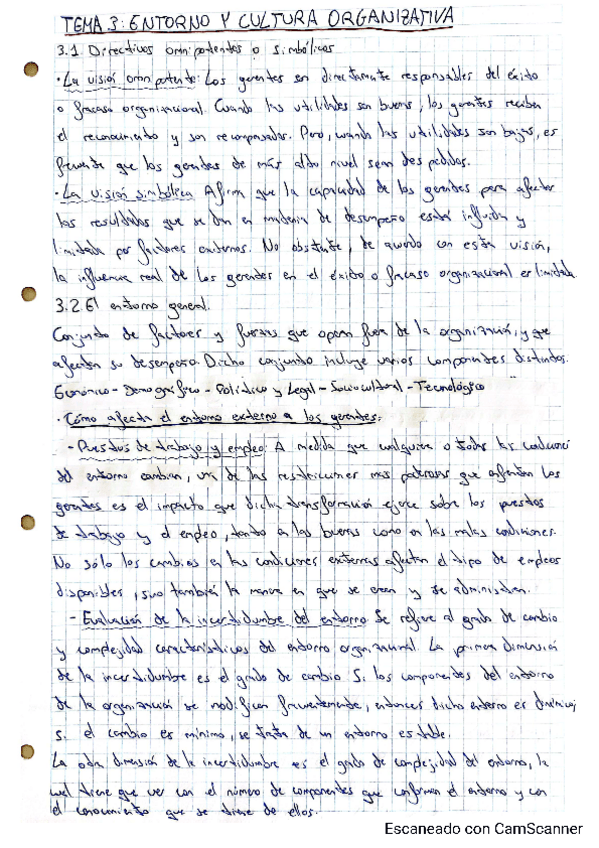 TEMA 3: ENTORNO Y CULTURA ORGANIZATIVA
3.1 Directivos omnipotentes o simbólicos
· La visión omnipotente: Los gerentes son directamente responsables del éxito
o fracaso organizacional. Cuando las utilidades son buenas, los gerentes reciben
el reconocimiento y son recompensados. Pero, cuando las utilidades son bajas, es
frecuente que los gerentes de más alto nivel sean despedidos.
· La visión simbólica Afirma que la capacidad de los gerentes para afectar
los resultados que se dan en materia de desempeño están influida y
limitada por factores externos. No obstante, de acuerdo con esta visión,
la influencia real de los gerentes en el éxito o fracaso organizacional es limitada.
3.2 El entorno general.
Conjunto de factores y fuerzas que operan fuera de la organización, y que
afectan su desempeño. Dicho conjunto incluye varios componentes distintos.
Económico - Demográfico - Político y Legal - Sociocultural - Tecnológico
· Cómo afecta el entorno externo a los gerentes:
- Puestos de trabajo y empleo: A medida que cualquiera o todas las condiciones
del entorno cambian, una de las restricciones más poderosas que enfrentan los
gerentes es el impacto que dicha transformación ejerce sobre los puestos
de trabajo y el empleo, tanto en las buenas como en las malas condiciones.
No sólo los cambios en las condiciones externas afectan el tipo de empleos
disponibles, sino también la manera en que se crean y se administran.
- Evaluación de la incertidumbre del entorno Se refiere al grado de cambio
y complejidad característicos del entorno organizacional. La primera dimensión
de la incertidumbre es el grado de cambio Si los componentes del entorno
de la organización se modifican frecuentemente, entonces dicho entorno es dinámico;
si el cambio es mínimo, se trata de un entorno estable.
La otra dimensión de la incertidumbre es el grado de complejidad del entorno, la
cual tiene que ver con el número de componentes que conforman el entorno y con
el conocimiento que se tiene de ellos.
Escaneado con CamScanner